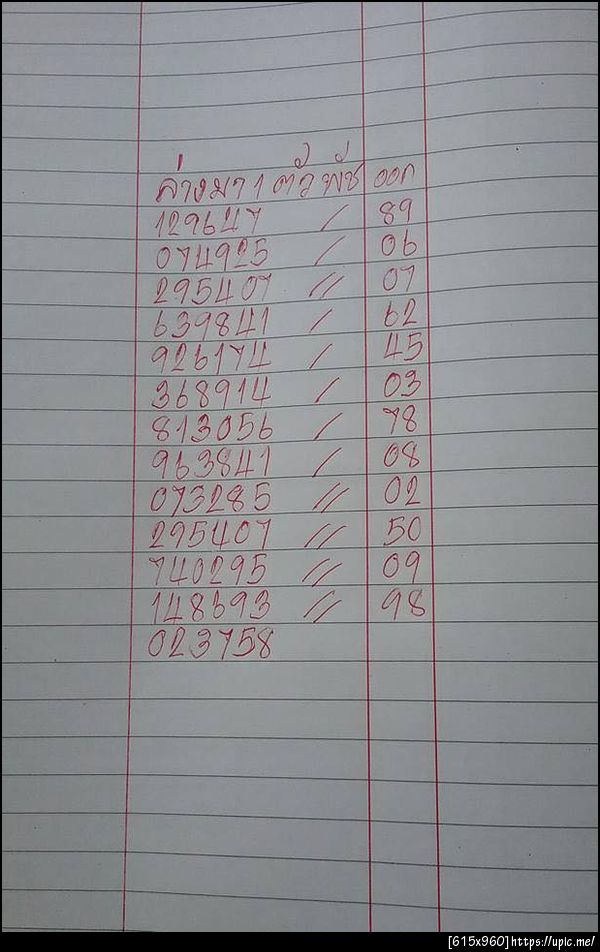 ล่างมา 1 ตัว พัช ออก
129647 / 89
074925 / 06
295407 // 07
639841 / 62
926174 / 45
368914 / 03
813056 / 78
963841 / 08
073285 // 02
295407 // 50
740295 // 09
148693 // 98
023758
[615x960]https://upic.me/